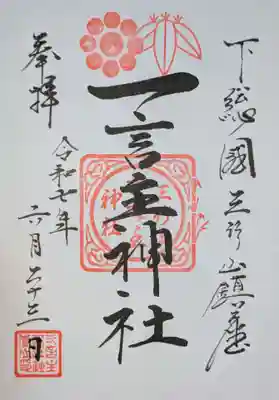 下総ノ國三竹山鎮座
一言主神社
奉拝
令和七年
六月二十三日